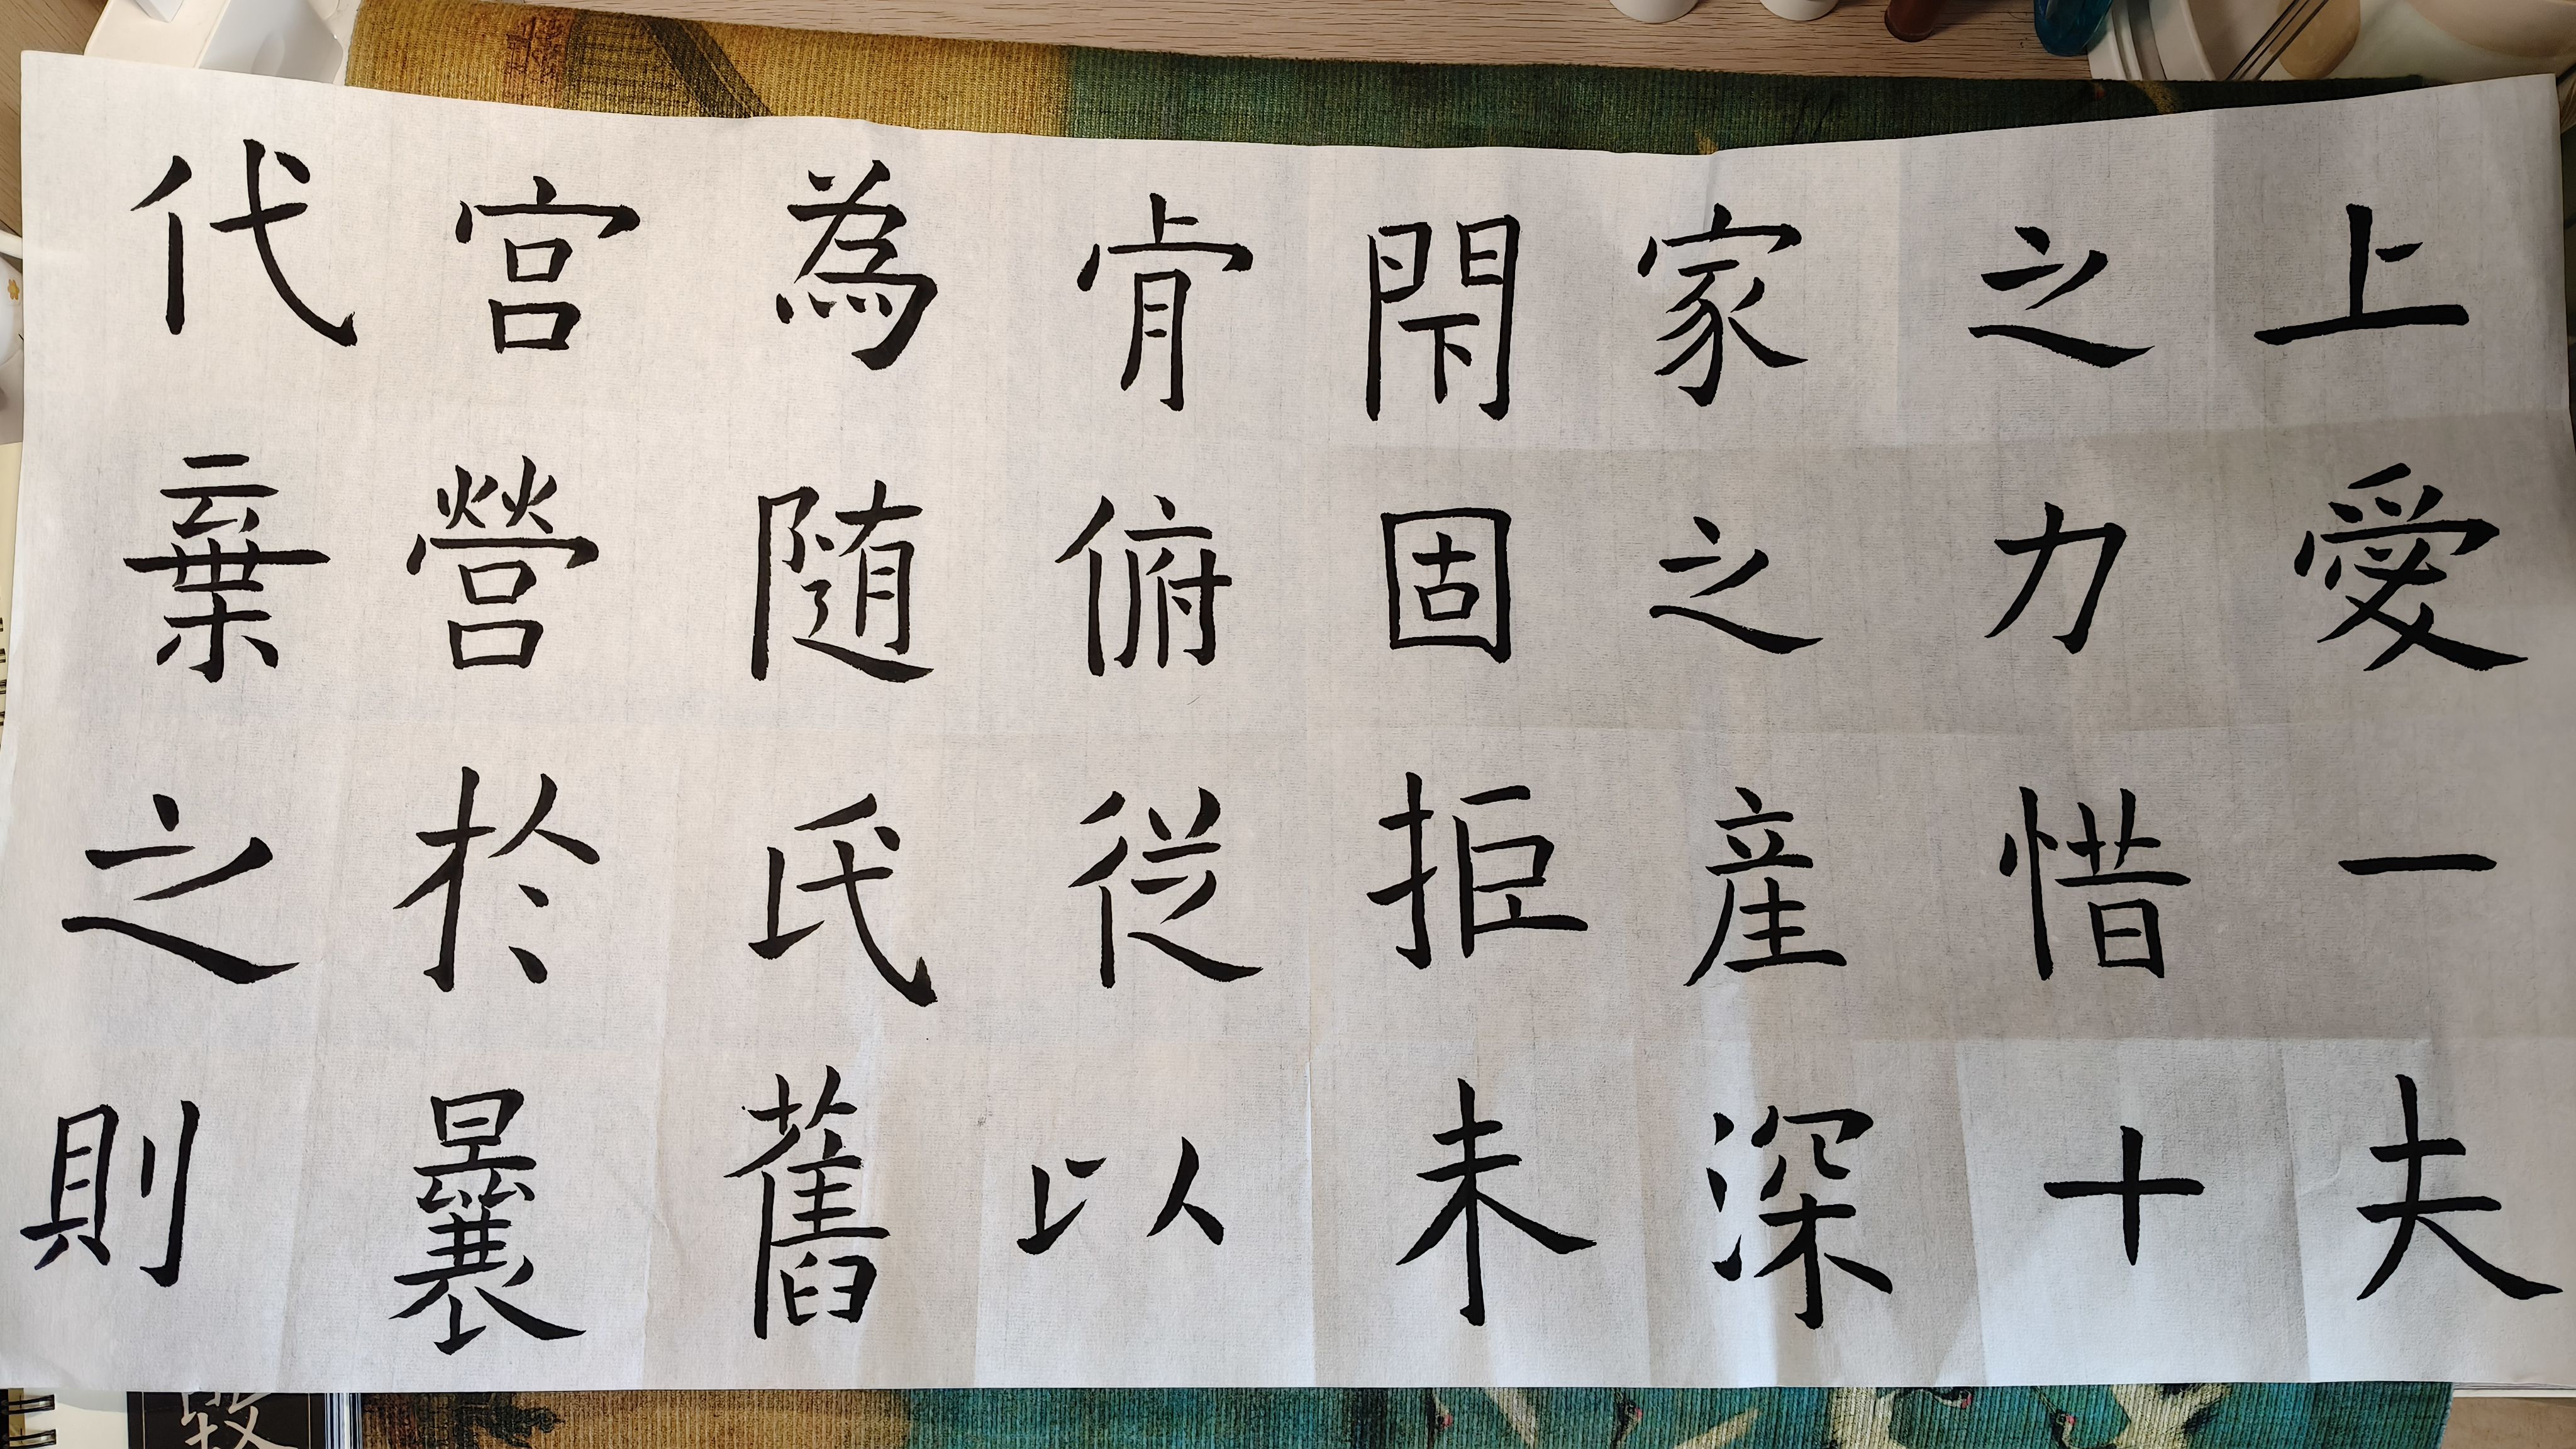 上愛一夫
之力惜十
家之産深
閇固拒未
肯俯従以
為随氏舊
宮營於曩
代棄之則